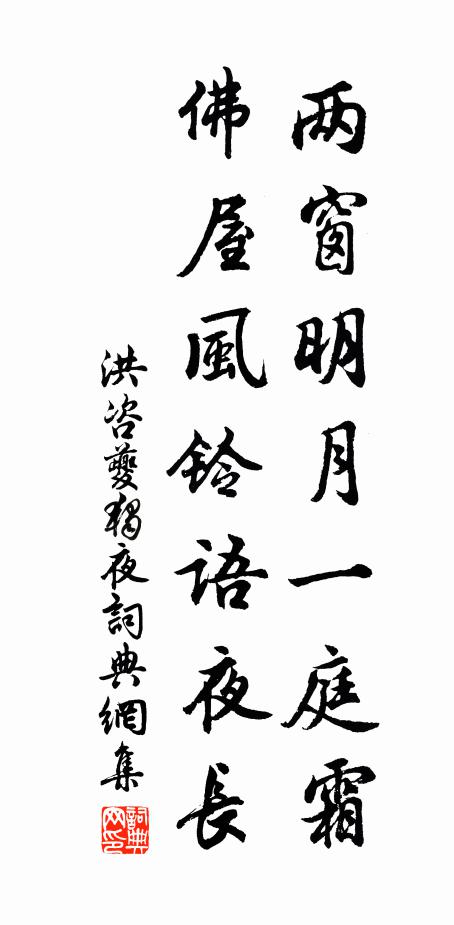 两窗明月一庭霜
佛屋風鈴語夜長
洪咨夔獨夜詞典網集
詞典网印